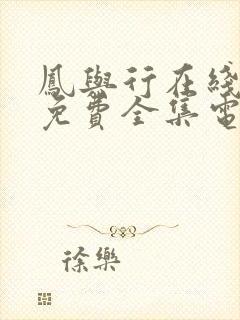 鳳與行在綫
免費全集電
徐樂